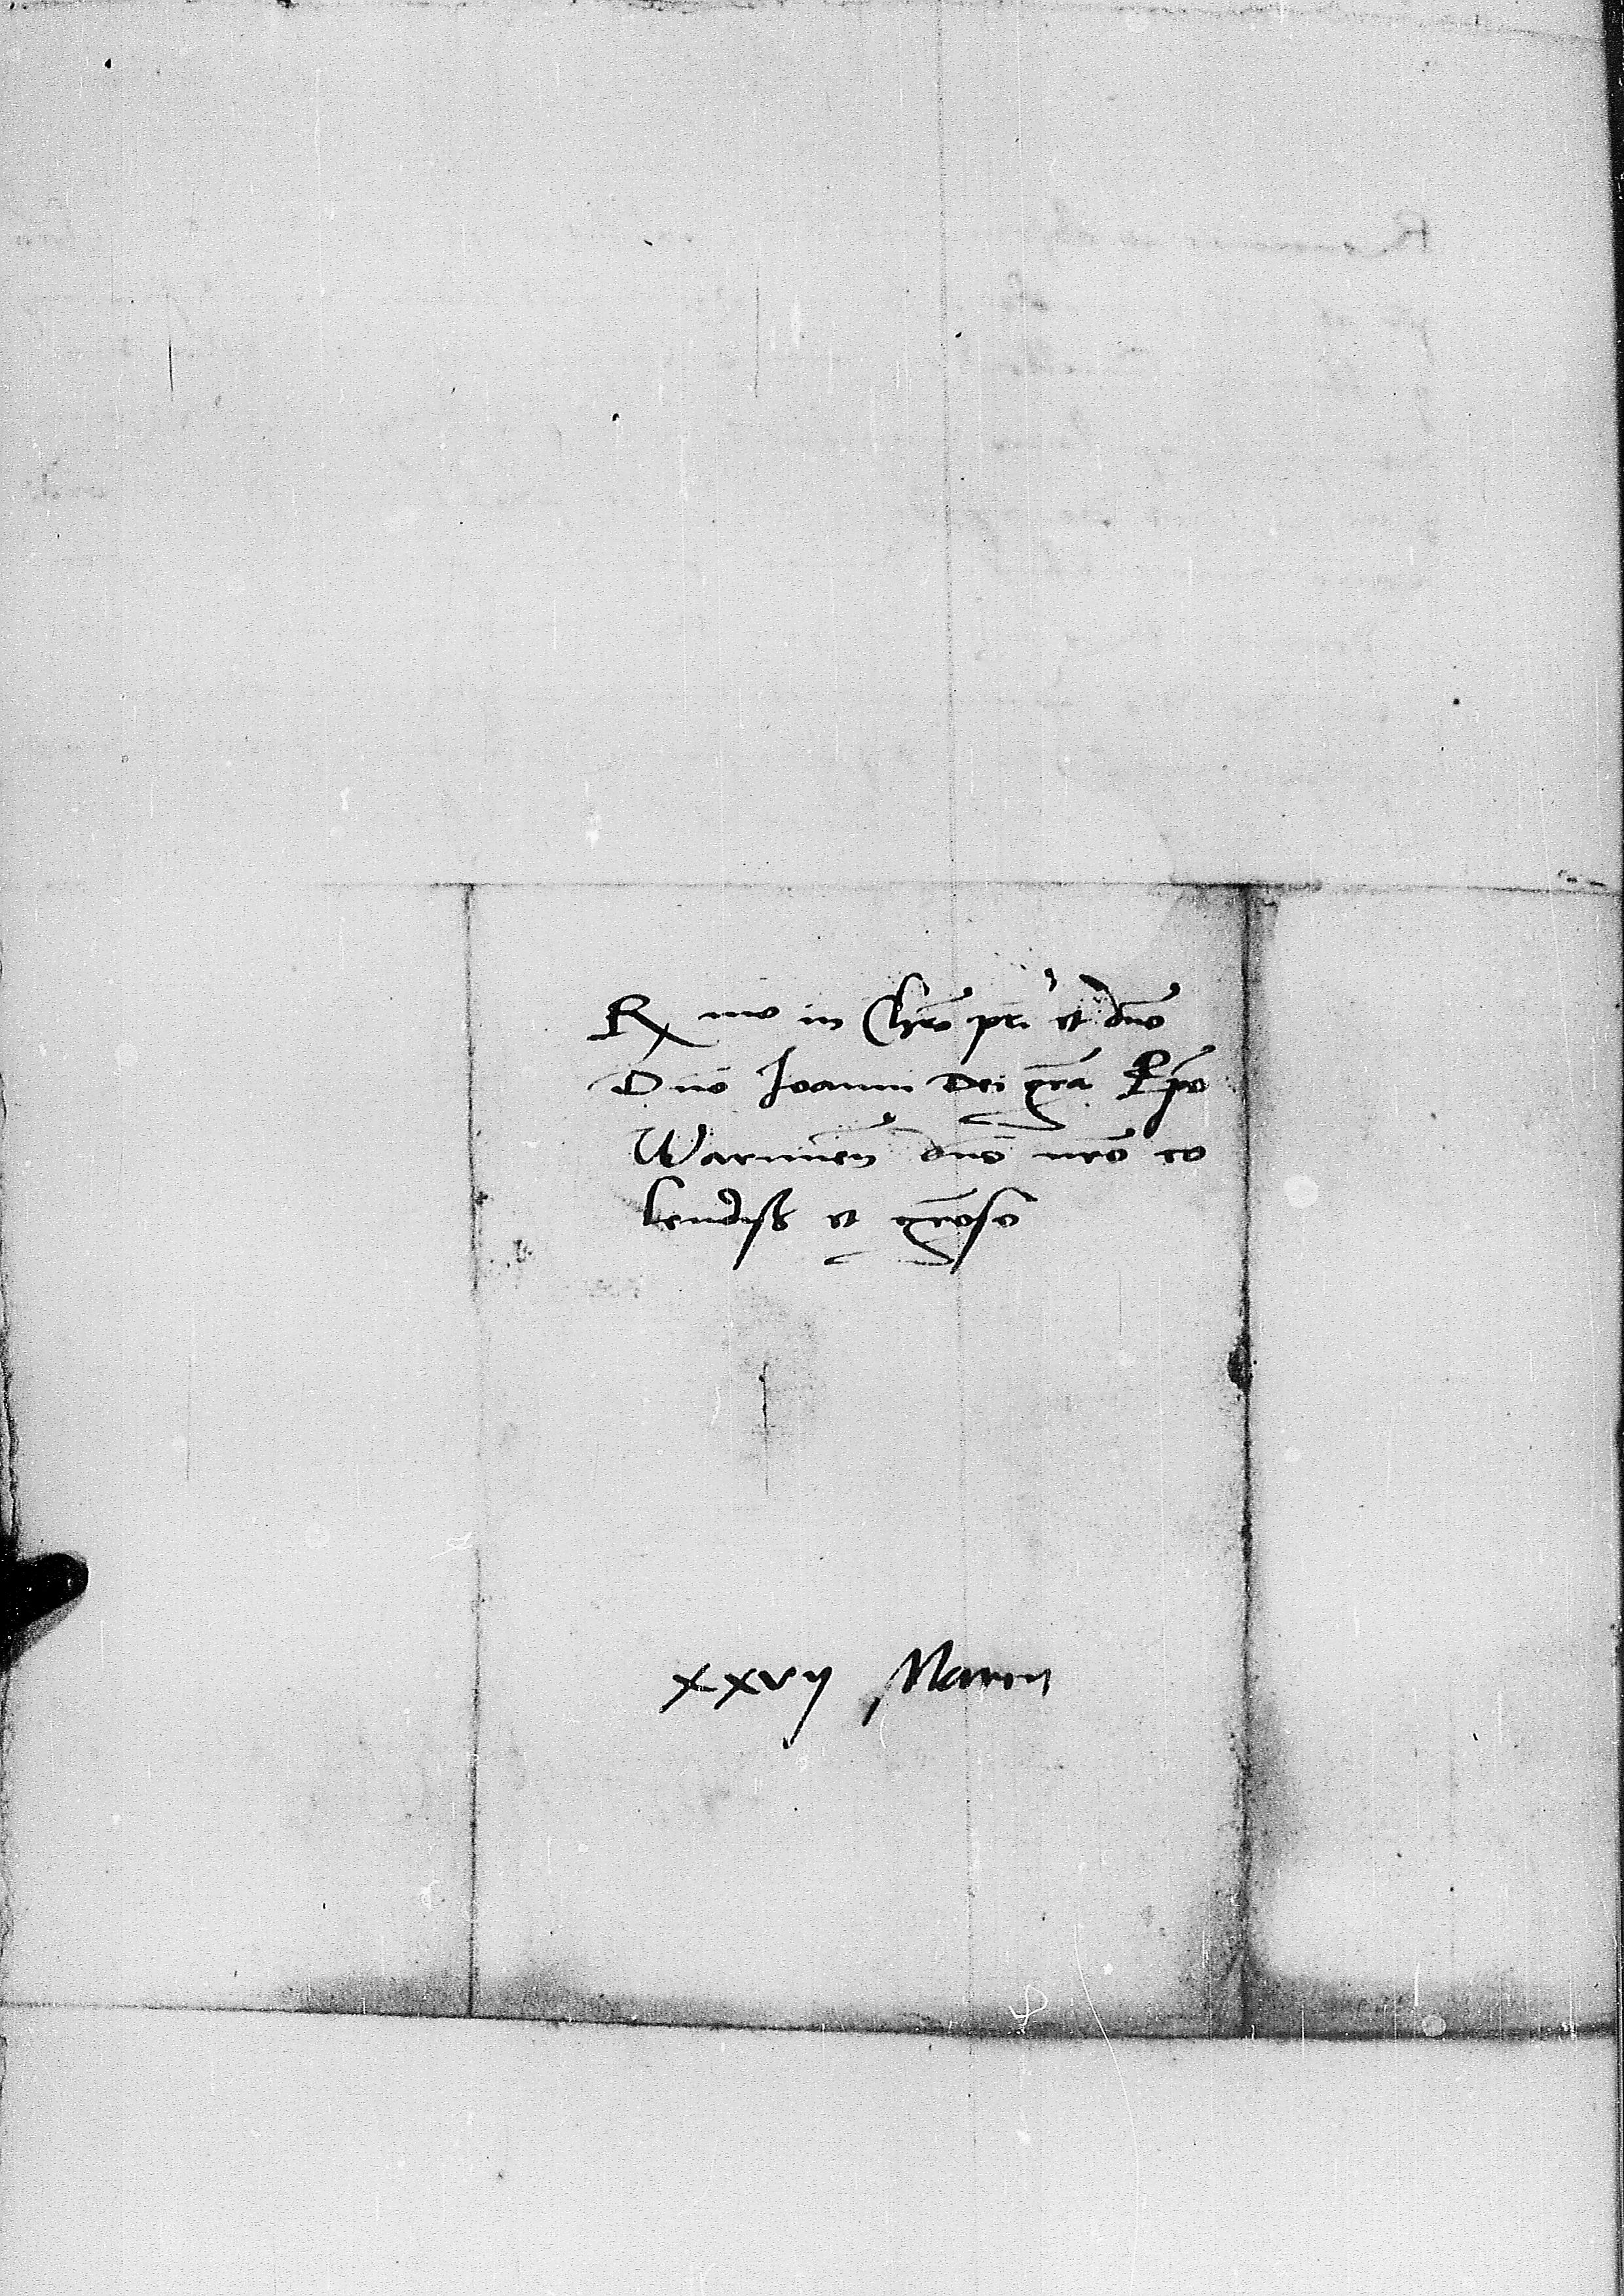 Rmo in Chro pri et dno
Dno Joanni Dei gra Epo
Warmien dno nro co
lendiss et groso
xxvij Martij